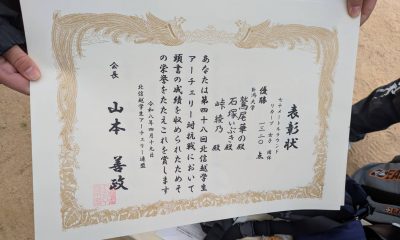 表彰状
七十メートルラウンド
リカーブ 女子 団体
優勝 一三二〇点
新潟大学
鷲尾華の殿
石塚いぶき殿
峠綾乃殿
あなたは第四十八回北信越学生
アーチェリー対抗戦において
頭書の成績を収められたためそ
の栄誉をたたえこれを賞します
令和八年四月十九日
北信越学生アーチェリー連盟
会長 山本善政